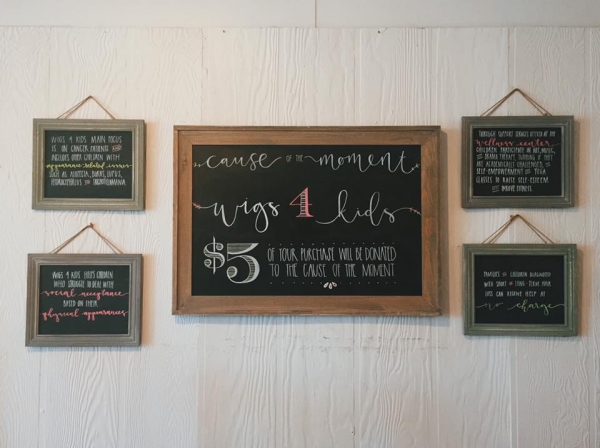 cause OF THE moment
wigs 4 kids
$5 OF YOUR PURCHASE WILL BE DONATED
TO THE CAUSE OF THE MOMENT
WIGS 4 KIDS MAIN FOCUS
IS ON CANCER PATIENTS AND
INCLUDES OTHER CHILDREN WITH
appearance-related issues
SUCH AS ALOPECIA, BURNS, LUPUS,
HYDROCEPHALUS AND TRICHOTILLOMANIA.
WIGS 4 KIDS HELPS CHILDREN
WHO STRUGGLE TO DEAL WITH
social acceptance
BASED ON THEIR
physical appearances
THROUGH SUPPORT SERVICES OFFERED AT THE
wellness center
CHILDREN PARTICIPATE IN ART, MUSIC,
AND DRAMA THERAPY, TUTORING IF THEY
ARE ACADEMICALLY CHALLENGED, AND
SELF-EMPOWERMENT AND YOGA
CLASSES TO RAISE SELF-ESTEEM
AND IMPROVE FITNESS.
FAMILIES OF CHILDREN DIAGNOSED
WITH SHORT OR LONG-TERM HAIR
LOSS CAN RECEIVE HELP AT
no charge